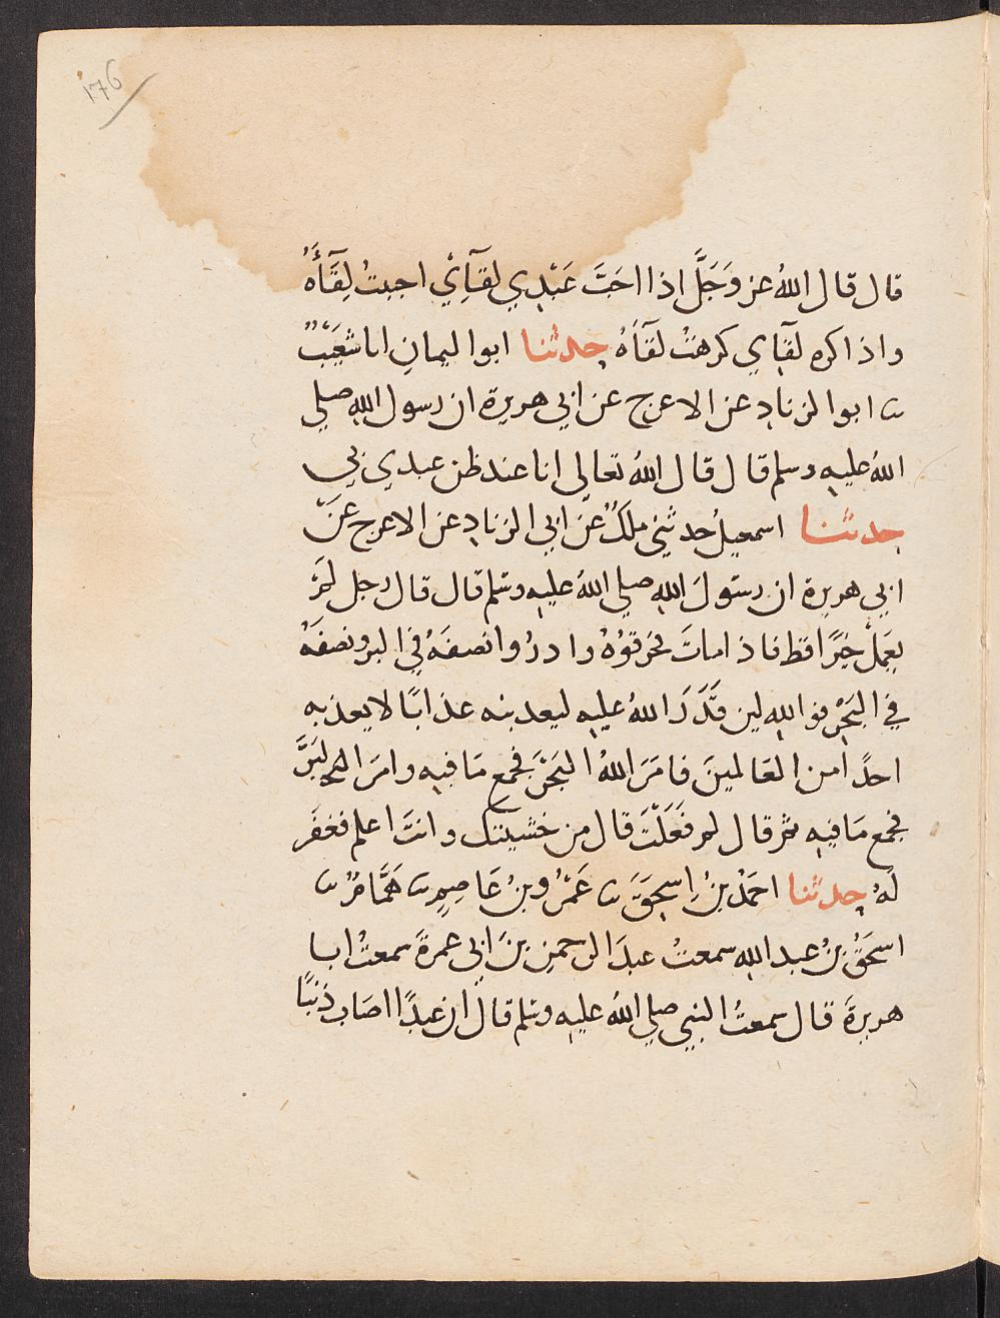 ١٧٥
قال قال اللهُ عز وَجَلَّ اذا احَبَّ عَبْدِي لقآءِيْ احببتُ لِقَآءَهُ
واذا كره لقآءي كرهتُ لقآءَهُ حدثنا ابوا ليمانِ انا شعَيْبٌ
ثنا ابوا لزنادِ عن الاعرج عن ابي هريرة ان رسول اللهِ صلي
اللهُ عليهِ وسلم قال قال اللهُ تعالي انا عند ظن عبدي بي
حدثنا اسمعيلُ حدثني ملكٌ عن ابي الزنادِ عن الاعرج عَنْ
ابي هريرة ان رسُولَ اللهِ صلي اللهُ عليهِ وسَلم قال قال رجل لَمْ
يعمَلْ خيرًا قط فاذا ماتَ فحرقوُهُ واذرُوا نصفَهُ في البر ونصفَهُ
في البَحْرِ فوا للهِ لين قَدَرَ اللهُ عليهِ ليعذبنه عذابًا لا يعذبه
احدًا من العَالمينَ فامَرَ اللهُ البَحْرَ فجمع مَا فيهِ وامَرَ البَرَّ
فجمع مَا فيهِ ثم قال لم فَعَلْتَ قال من خشيتك وانتَ اعلم فغفَر
لَهُ حدثنا احمَدُ بنُ اِسحقَ ثنا عَمْرُو بنُ عَاصِمٍ ثنا هَمَّامٌ ثنا
اسحَقُ بنُ عبد اللهِ سمعتُ عبدَ الرحمنِ بنَ ابي عمرةَ سمعتُ ابا
هريرةَ قال سمعتُ النبي صلي اللهُ عليهِ وسَلم قال ان عبدًا اصَاب ذنبًا